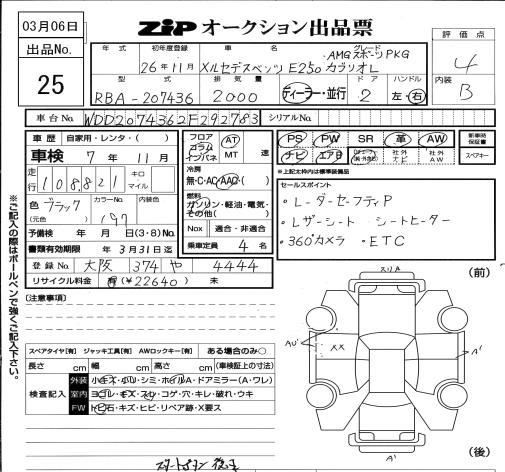 03月06日
出品No.
25
ZIP オークション出品票
評価点
4
内装
B
年式 初年度登録 車名 グレード
26年11月 メルセデスベンツ E250 AMGスポーツPKG
カブリオレ
型式 排気量 ドア ハンドル
RBA-207436 2000 ディーラー・並行 2 左・右
車台No. WDD2074362F292783 シリアルNo.
車歴 自家用・レンタ・( )
車検 7年 11月
走行 108,821 キロ マイル
色 ブラック カラーNo. 197 内装色
(元色)
予備検 年 月 日(3・8)No.
書類有効期限 3月31日迄
登録No. 大阪 374 や 4444
リサイクル料金 有(¥22640) 未
フロア コラム インパネ AT MT 速
冷房
無・C・AC・AAC・( )
燃料
ガソリン・軽油・電気・その他( )
Nox 適合・非適合
乗車定員 4 名
PS PW SR 革 AW
ナビ エアB 社外ナビ 社外AW
新車時保証書
スペアキー
*上記太枠内は標準装備品
セールスポイント
・レーダーセーフティP
・レザーシート シートヒーター
・360°カメラ ・ETC
※ご記入の際はボールペンで強くご記入下さい。
[注意事項]
(前)
スリA
AU'
XX
A'
(後)
スペアタイヤ[有] ジャッキ工具[有] AWロックキー[有] ある場合のみ○
長さ cm 幅 cm 高さ cm (車検証上の寸法)
検査記入
外装 小キズ・小凹・シミ・ホイルA・ドアミラー(A・ワレ)
室内 ヨゴレ・キズ・スレ・コゲ・穴・キレ・破れ・ウキ
FW トビ石・キズ・ヒビ・リペア跡・X要ス